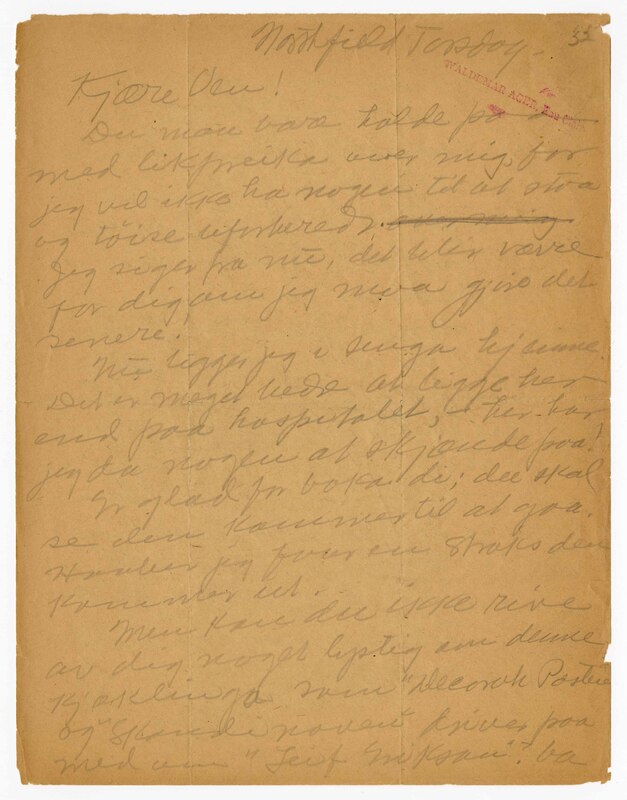 Northfield Torsdag. 32
WALDEMAR AGER, Eau Claire
Kjære Ven!
Du maa være holde paa
med likpreika over mig, for
jeg vil ikke ha nogen til at staa
og tøise uforberedt over mig.
Jeg siger fra nu, det blir værre
for dig om jeg maa gjøre det
senere!
Nu ligger jeg i senga hjemme.
Det er meget bedre at ligge her
end paa hospitalet, – her har
jeg da nogen at skjænde paa!
Er glad for boka di; du skal
se den kommer til at gaa.
Haaber jeg faar en straks den
kommer ut.
Men kan du ikke rive
av dig noget lystig om denne
kjæklinga som "Decorah Posten
og "Skandinaven" driver paa
med om "Leif Erikson".